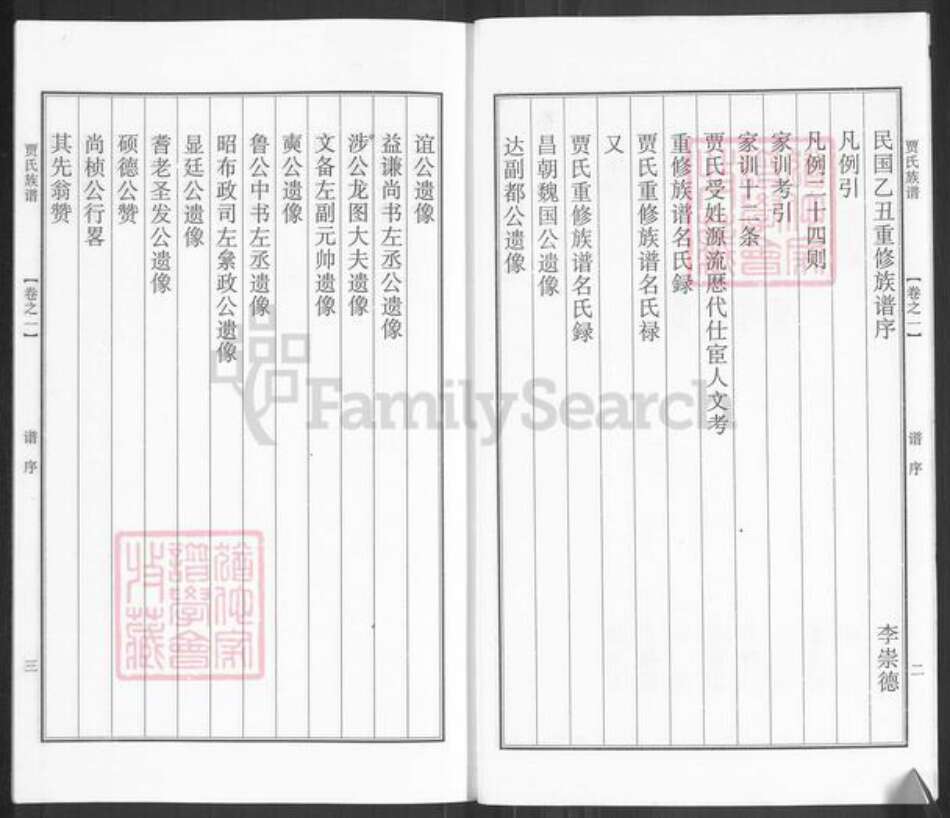 贾氏族谱
【卷之一】
谱序
二
民国乙丑重修族谱序 李崇德
凡例引
凡例二十四则
家训考引
家训十二条
贾氏受姓源流历代仕宦人文考
重修族谱名氏録
贾氏重修族谱名氏禄
又
贾氏重修族谱名氏録
昌朝魏国公遗像
达副都公遗像
谊公遗像
益谦尚书左丞公遗像
涉公龙图大夫遗像
文备左副元帅遗像
奭公遗像
鲁公中书左丞遗像
昭布政司左叅政公遗像
显廷公遗像
耆老圣发公遗像
硕德公赞
尚桢公行畧
其先翁赞
贾氏族谱
【卷之一】
谱序
三
FamilySearch